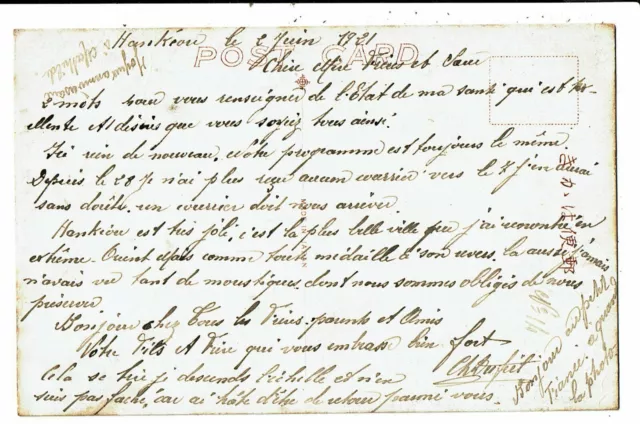 Hankéou le 2 Juin 1921
POST CARD
Chère Mère Frère et Sœur
2 mots pour vous renseigner de l'Etat de ma santé qui est ex-
ellente et désire que vous soyiez tous ainsi.
Ici rien de nouveau. Notre programme est toujours le même.
Depuis le 28 Je n'ai plus reçu aucun courrier vers le 8 J'en aurai
sans doute. un courrier doit nous arriver
Hankéou est très joli, c'est la plus belle ville que j'ai rencontré en
extrême Orient mais comme toute médaille à son revers. la aussi j'amais
n'avais vu tant de moustiques, dont nous sommes obligés de nous
préserver
Bonjour chez Tous les Frères parents et Amis
Votre Fils et Frère qui vous embrasse bien fort
Cela se tire je descends l'échelle et n'en
suis pas faché, car ai hâte d'être de retour parmi vous.
Bonjour au petit
Francis. a quand
la photo
à Mathilde
便郵